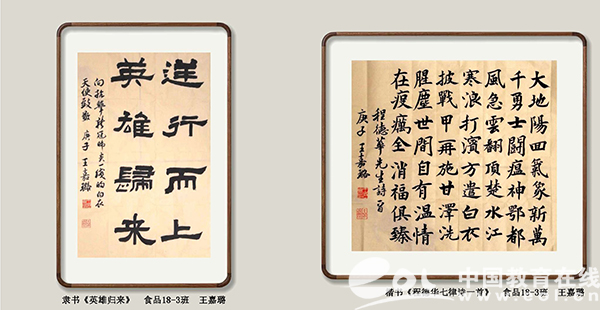 逆行而上
英雄歸来
向抗擊新冠肺炎一线的白衣
天使致敬 庚子 王嘉璐
大地陽回氣象新萬
千勇士鬭瘟神鄂都
風急雲翻頂楚水江
寒浪打濱方遣白衣
披戰甲再施甘澤洗
腥塵世間自有温情
在疫癘全消福俱臻
程德華先生詩一首
庚子 王嘉璐
隶书《英雄归来》 食品18-3班 王嘉璐
楷书《程德华七律诗一首》 食品18-3班 王嘉璐
中国教育在线